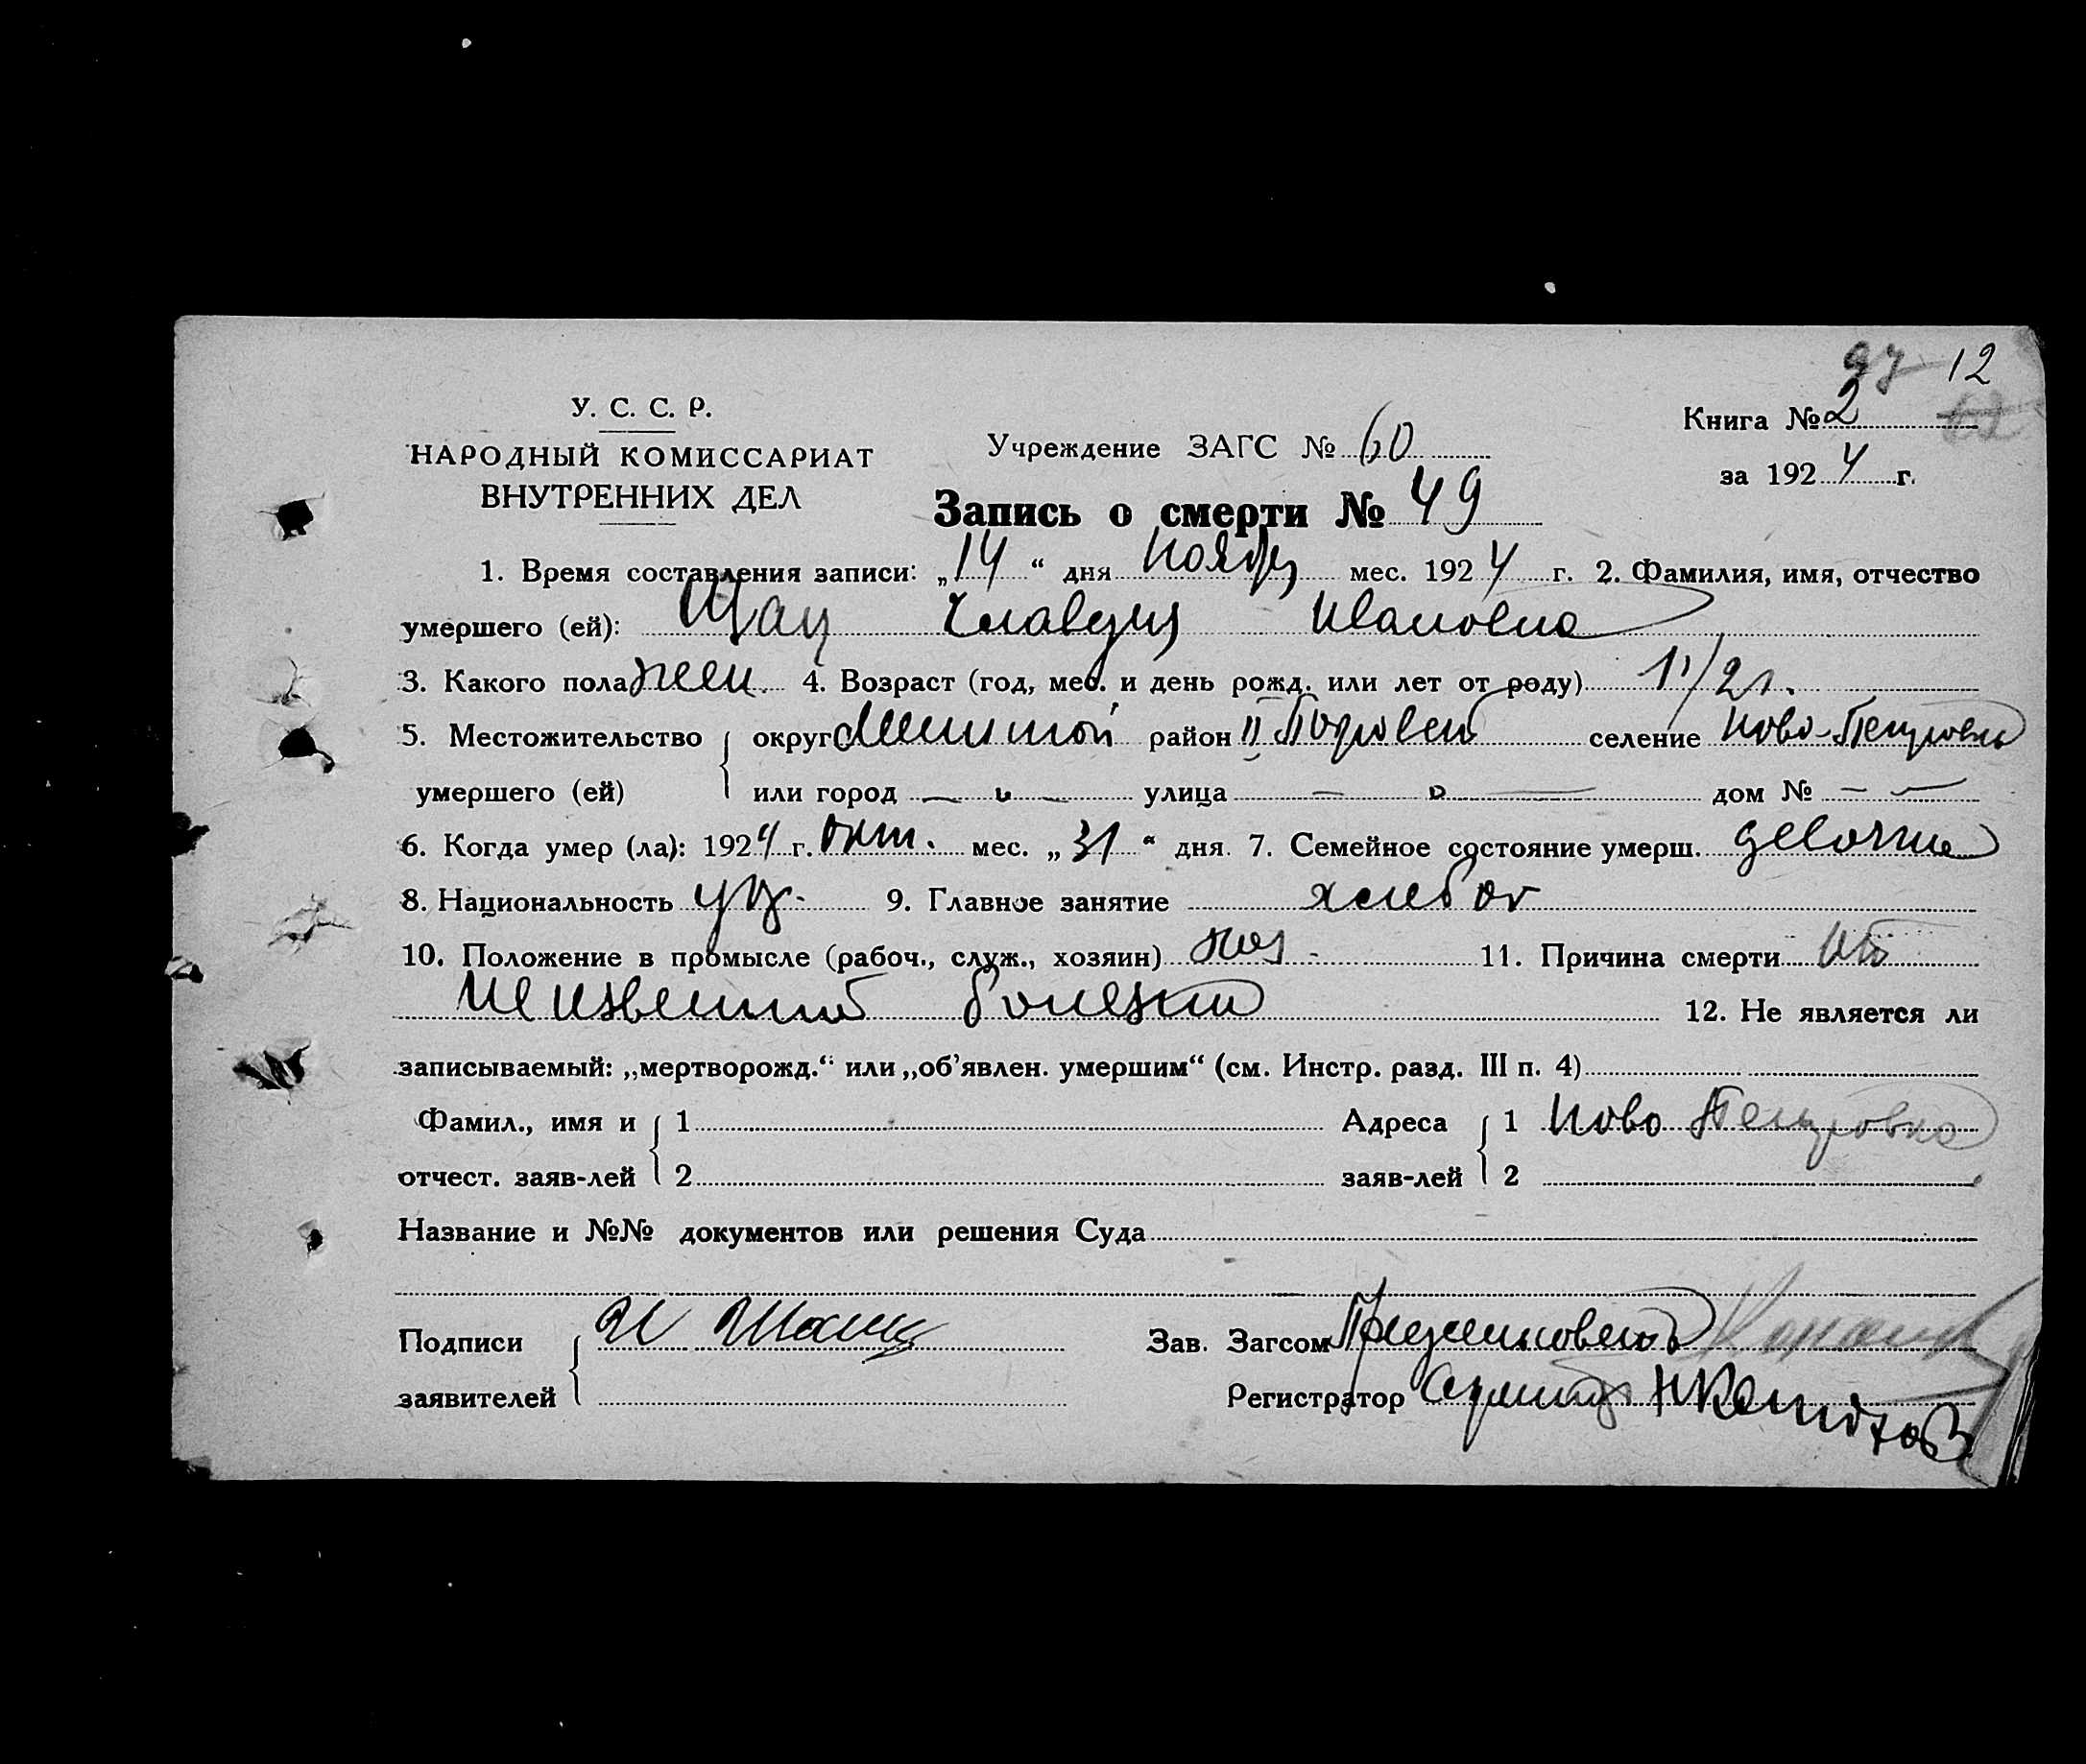 12
У. С. С. Р.
НАРОДНЫЙ КОМИССАРИАТ
ВНУТРЕННИХ ДЕЛ
Учреждение ЗАГС № 60
Книга № 2
за 1924 г.
Запись о смерти № 49
1. Время составления записи: „14“ дня ноября мес. 1924 г. 2. Фамилия, имя, отчество
умершего (ей): Клавдия Ивановна
3. Какого пола жен. 4. Возраст (год, мес. и день рожд. или лет от роду) 1 1/2 г.
5. Местожительство округ район II селение Ново-Петровка
умершего (ей) или город — „ — улица — „ — дом № — —
6. Когда умер (ла): 1924 г. окт. мес. „31“ дня. 7. Семейное состояние умерш. девочка
8. Национальность 9. Главное занятие хлебоп
10. Положение в промысле (рабоч., служ., хозяин) хоз 11. Причина смерти от
неизвестной болезни 12. Не является ли
записываемый: „мертворожд.“ или „об’явлен. умершим“ (см. Инстр. разд. III п. 4)
Фамил., имя и 1 Адреса 1 Ново Петровка
отчест. заяв-лей 2 заяв-лей 2
Название и №№ документов или решения Суда
Подписи И Зав. Загсом
заявителей Регистратор